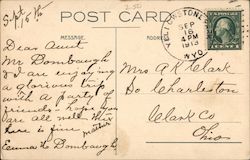 POST CARD
MESSAGE.
ADDRESS.
YELLOWSTONE
SEP
16
4 PM
1913
WYO
Sept 15
Dear Aunt
Mr Dombaugh
& I are enjoying
a glorious trip
with a party of
friends. hope you
are all well. The
here is fine
Emma Dombaugh
Mrs A R Clark
So Charleston
Clark Co
Ohio